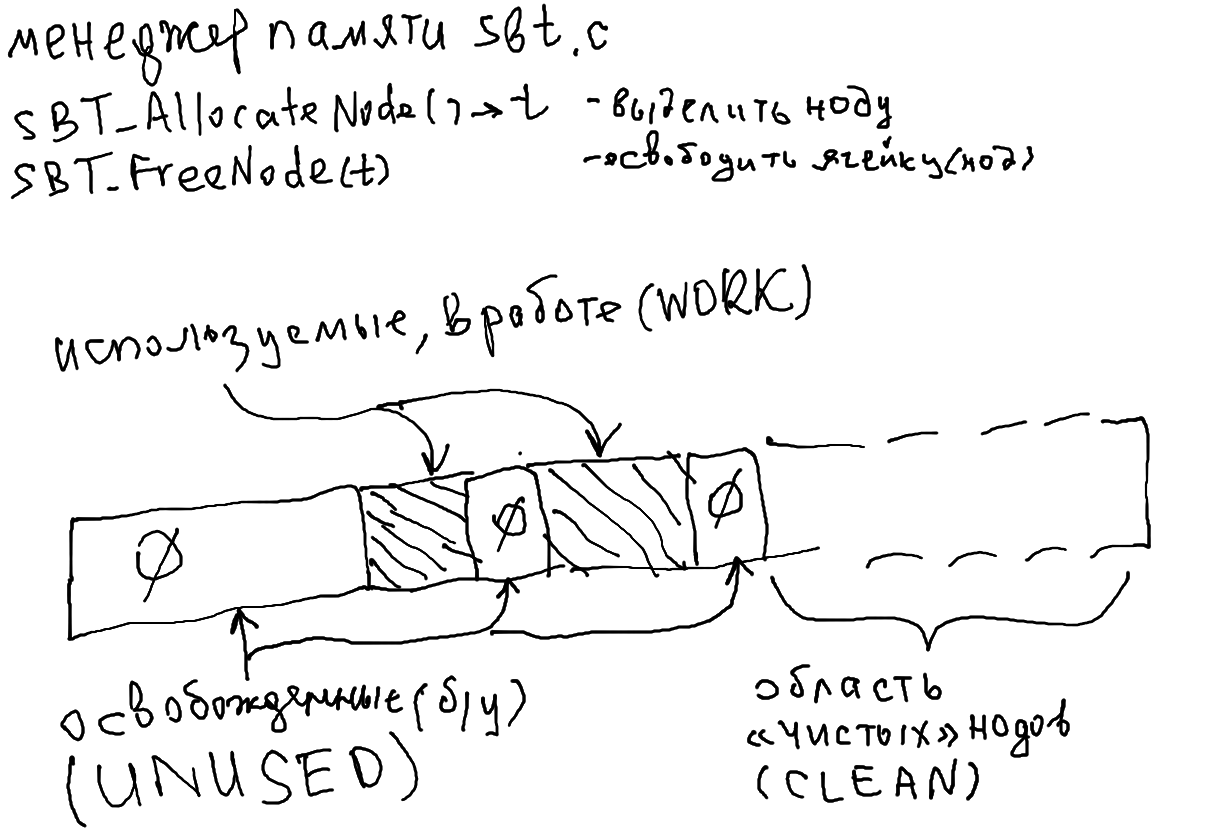 менеджер памяти sbt.c
SBT_AllocateNode()→t -выделить ноду
SBT_FreeNode(t) -освободить ячейку(нод)
используемые, в работе (WORK)
Ø Ø Ø
освобожденные (б/у)
(UNUSED)
область
«чистых» нодов
(CLEAN)